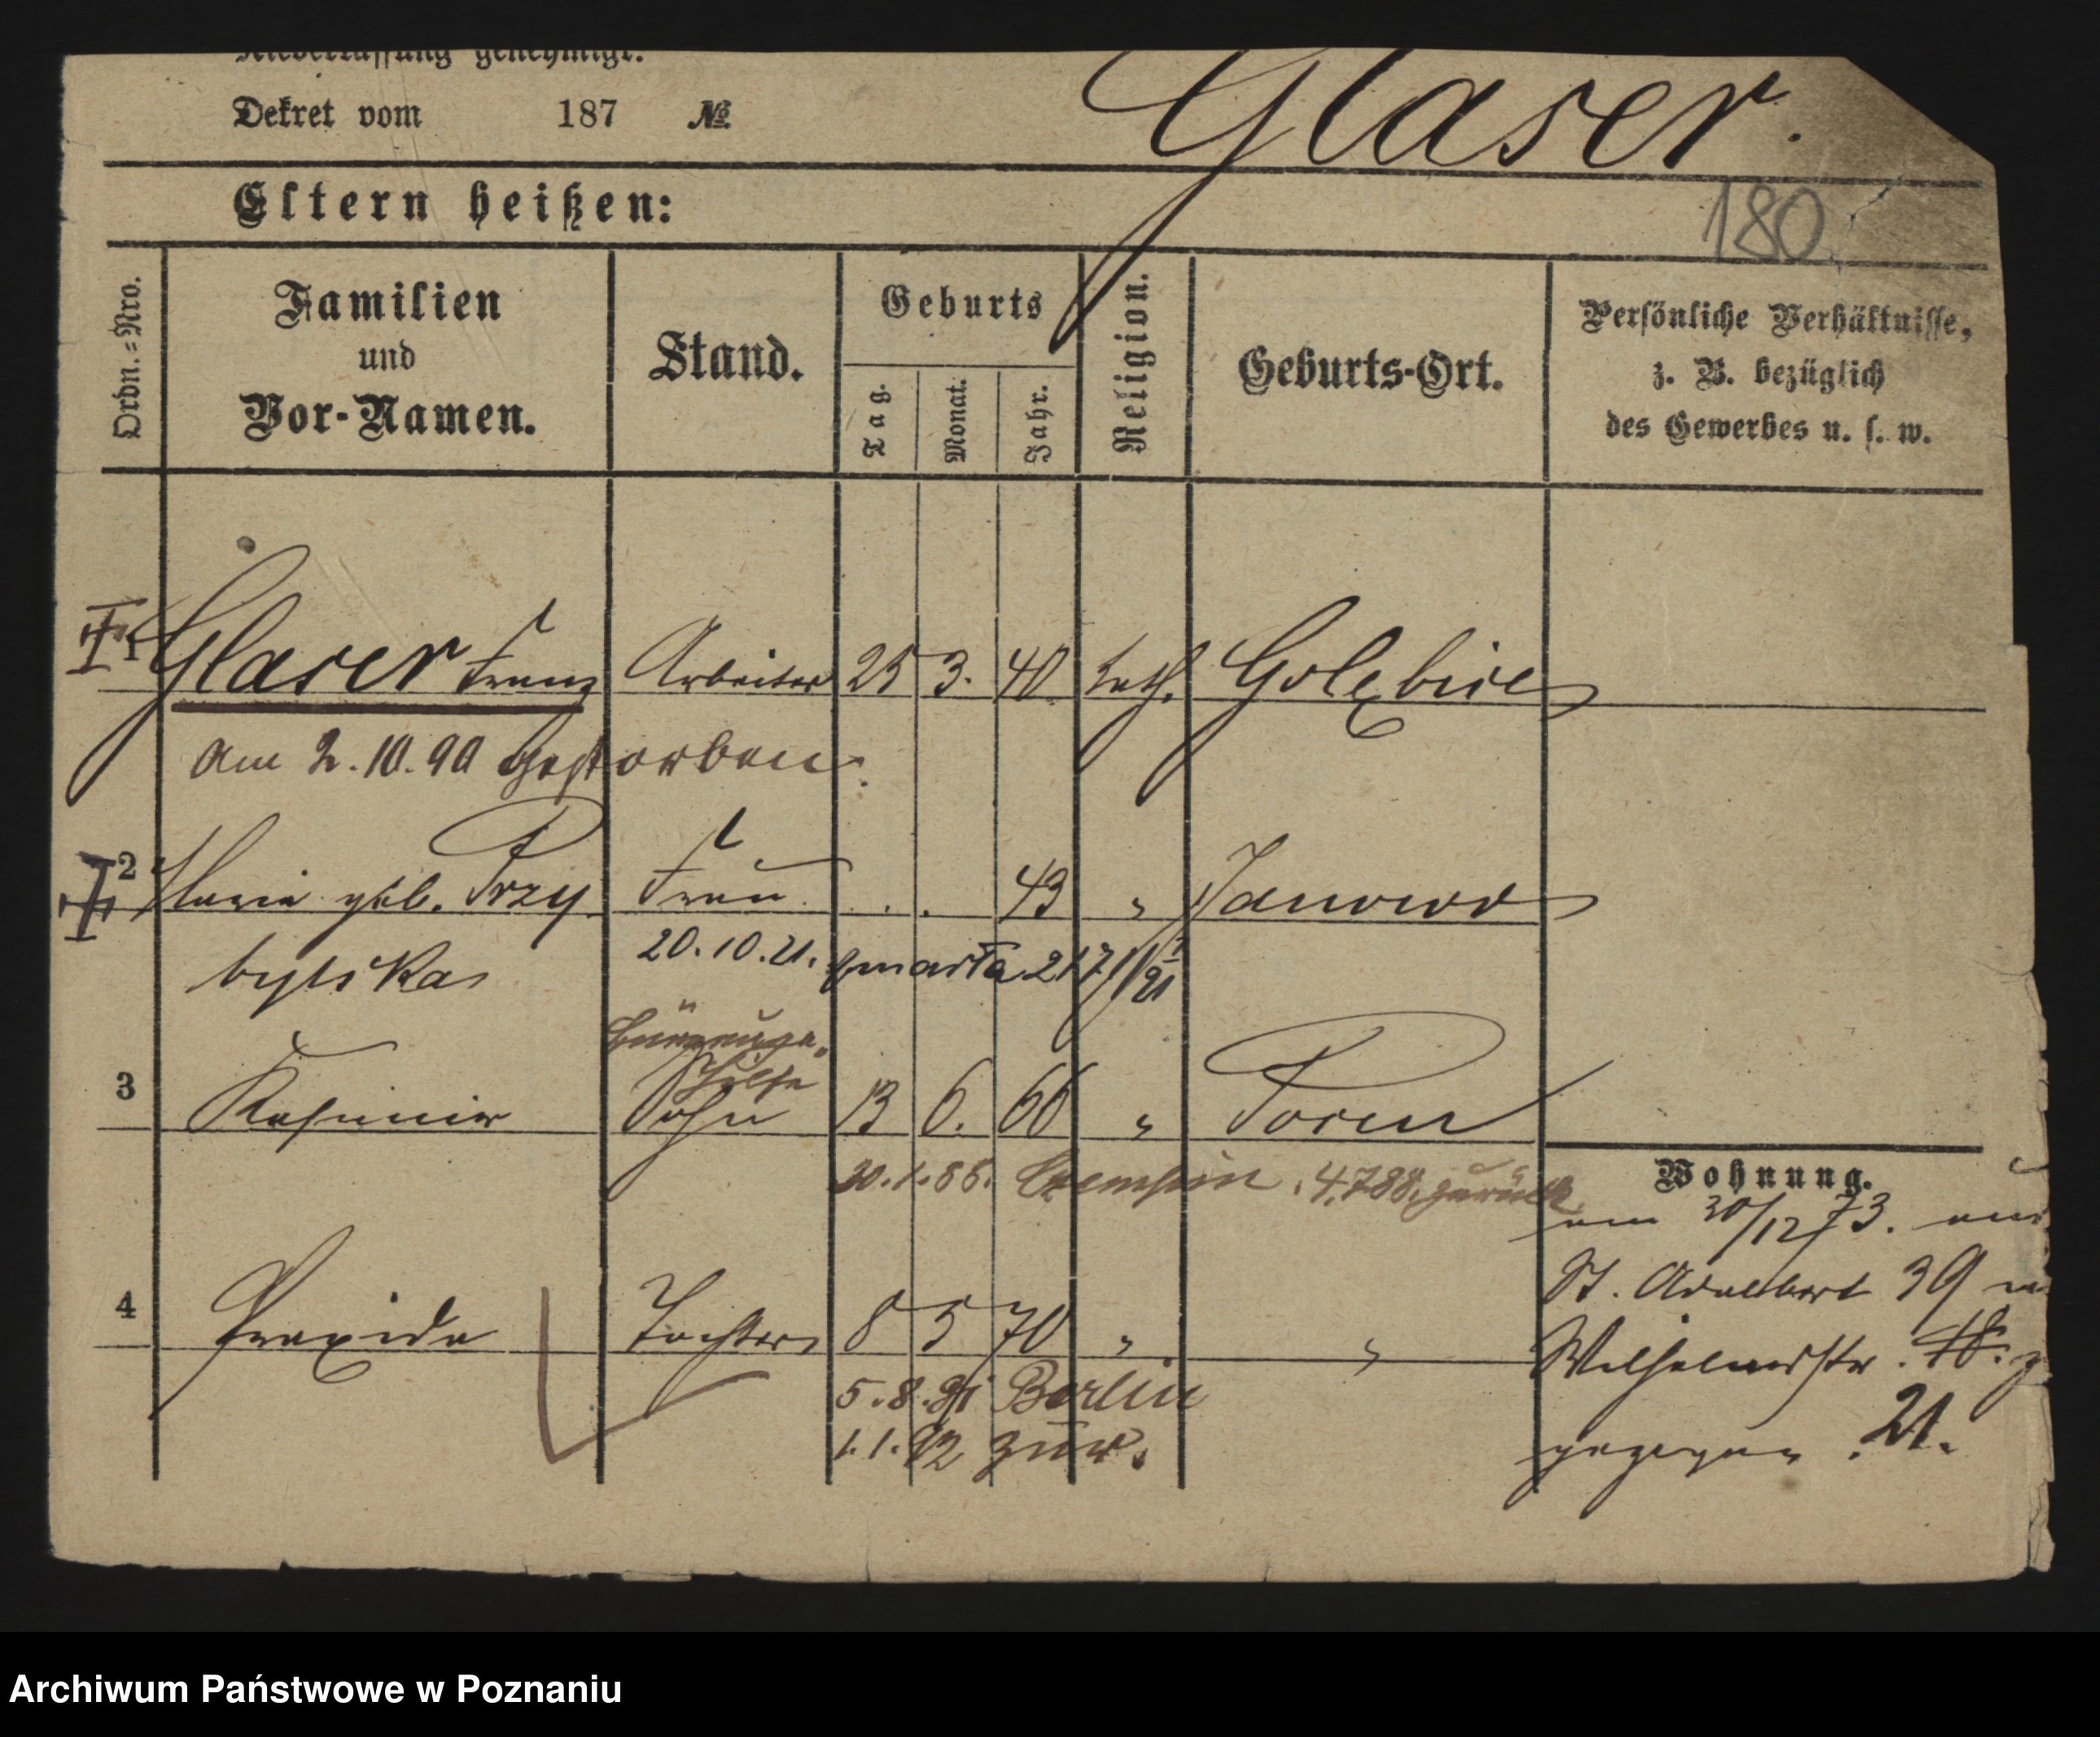 Niederlassung genehmigt.
Dekret vom 187 №
Glaser.
180
Eltern heißen:
Ordn.=Nro.
Familien
und
Vor-Namen.
Stand.
Geburts
Tag.
Monat.
Jahr.
Religion.
Geburts-Ort.
Persönliche Verhältnisse,
z. B. bezüglich
des Gewerbes u. s. w.
1 Glaser Franz Arbeiter 25 3. 40 kath.
Am 2.10.90 gestorben.
2 Maria geb. Przy Frau . . 43 " Janowo
bylska
20.10.21.
3 Kasimir Sohn 13 6. 66 " Posen
4.7.88. zurück
4 Praxeda Tochter 8 5 70 " "
5.8.91 Berlin
1.1.92 zur.
Wohnung.
am 30/12 73.
St. Adalbert 39
Wilhelmstr. 18.
gezogen. 21.
Archiwum Państwowe w Poznaniu